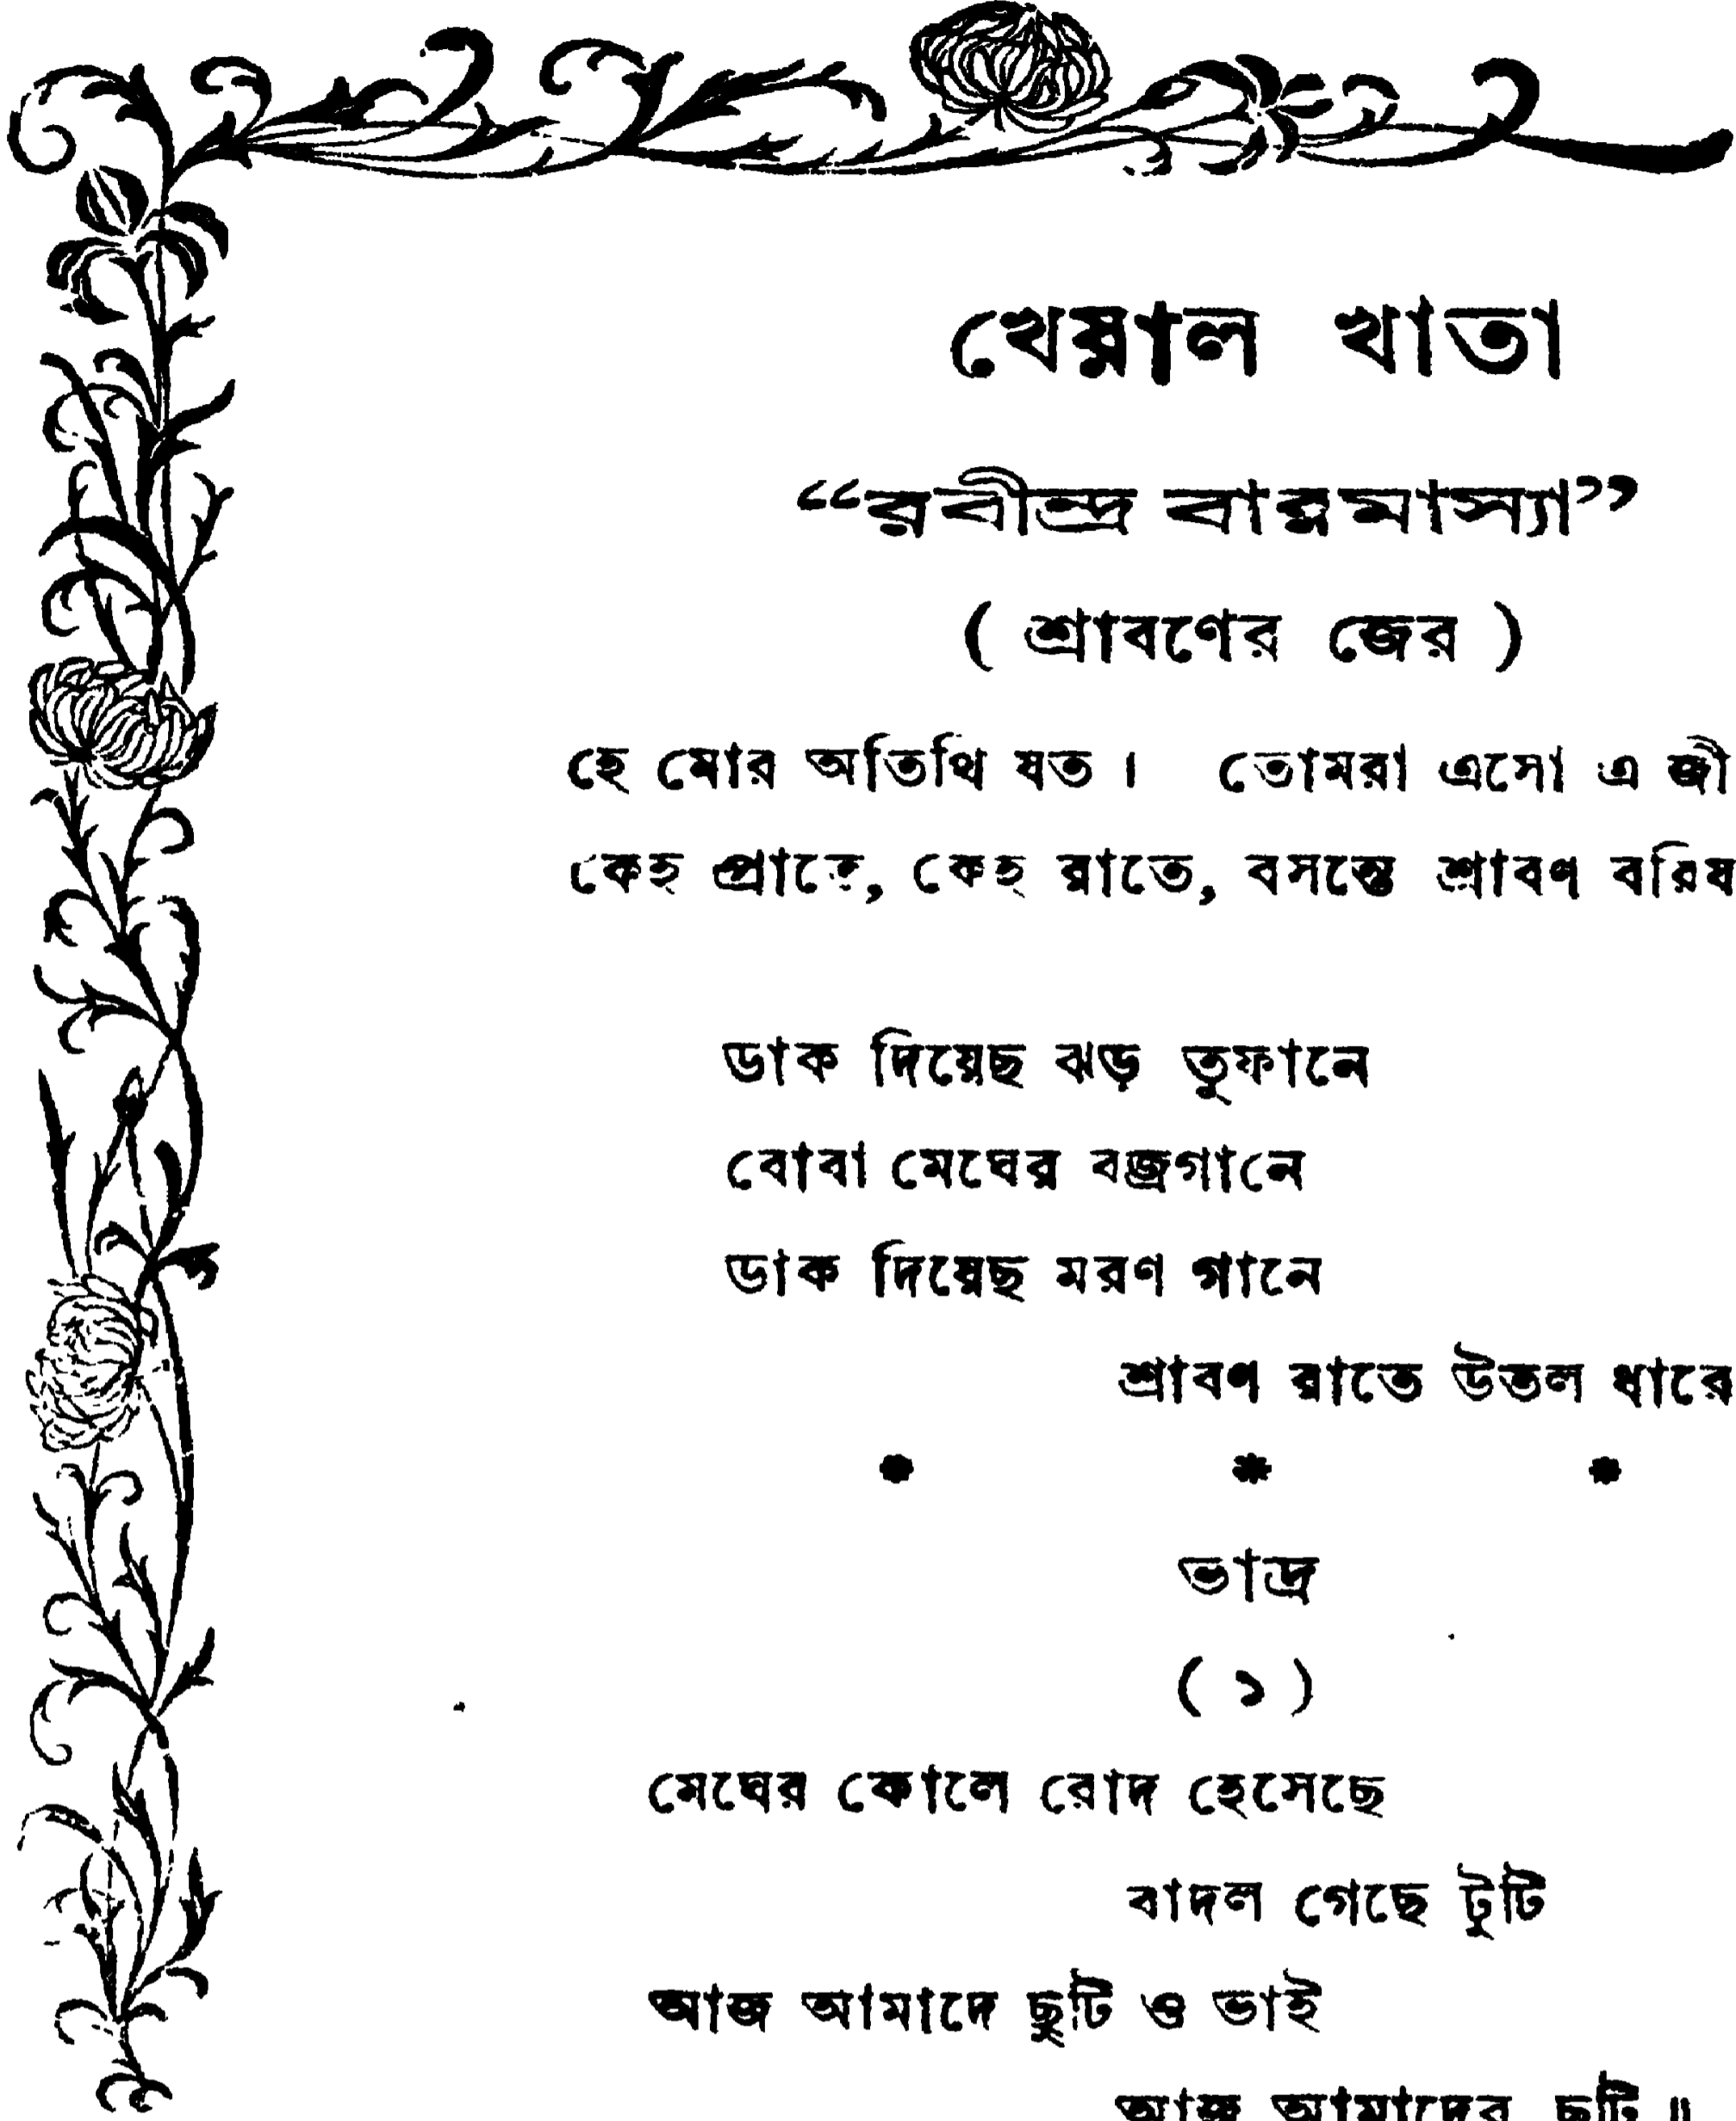 খেয়াল খাতা
“রবীন্দ্র বারমাস্যা”
( শ্রাবণের জের )
হে মোর অতিথি যত । তোমরা এসো এ জী
কেহ প্রাতে, কেহ রাতে, বসন্তে শ্রাবণ বরিষ
ডাক দিয়েছ ঝড় তুফানে
বোবা মেঘের বজ্রগানে
ডাক দিয়েছ মরণ গানে
শ্রাবণ রাতে উতল ধারে
* * *
ভাদ্র
( ১ )
মেঘের কোলে রোদ হেসেছে
বাদল গেছে টুটি
আজ আমাদে ছুটি ও ভাই
আজ আমাদের ছুটি ॥